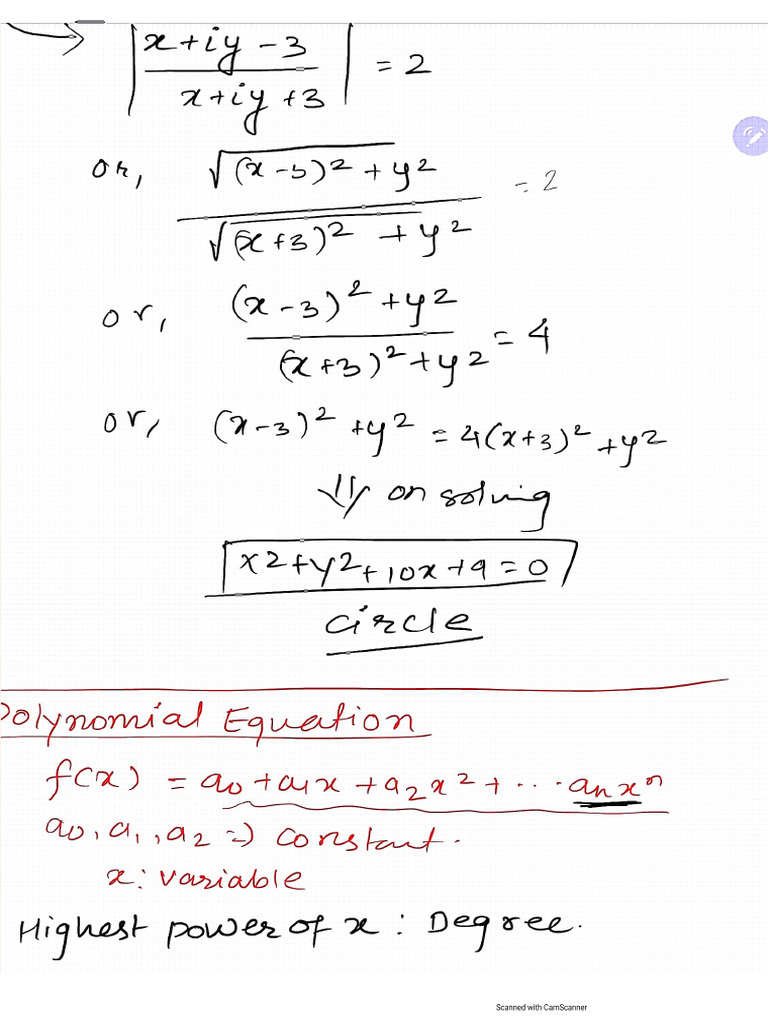 |x+iy-3 / x+iy+3| = 2
or, √(x-3)2+y2 / √(x+3)2+y2 = 2
or, (x-3)2+y2 / (x+3)2+y2 = 4
or, (x-3)2+y2 = 4(x+3)2+y2
⇓ on solving
x2+y2+10x+9=0
circle
Polynomial Equation
f(x) = a0+a1x+a2x2+...anxn
a0,a1,a2 => constant.
x: variable
Highest power of x: Degree.
Scanned with CamScanner